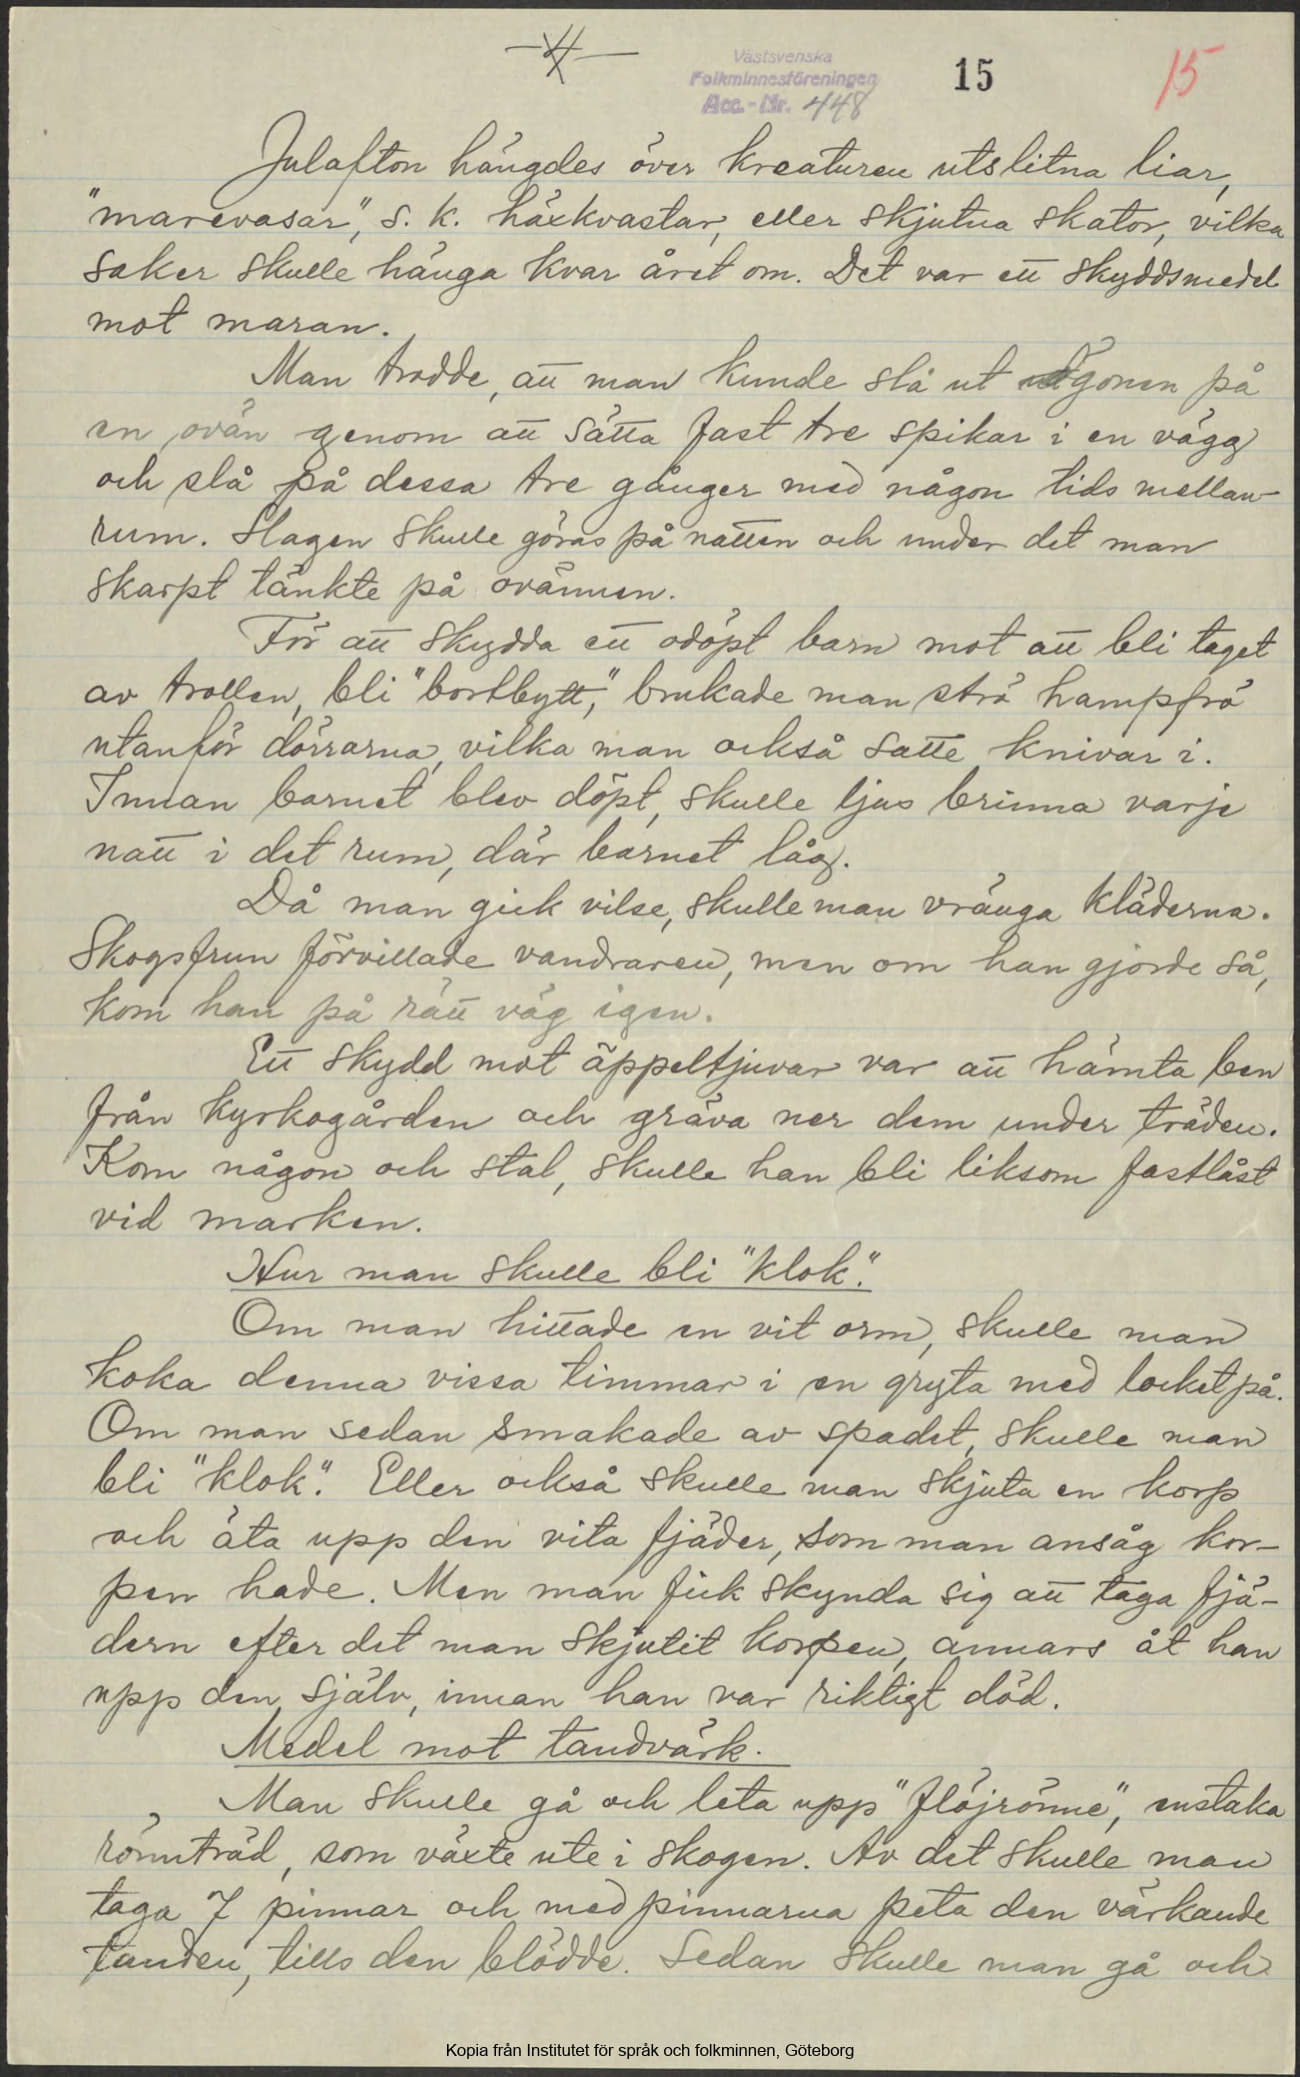 -4-
Västsvenska
Folkminnesföreningen
Acc.-Nr. 448
15
15
Julafton hängdes över kreaturen utslitna liar,
"marevasar", s. k. häxkvastar, eller skjutna skator, vilka
saker skulle hänga kvar året om. Det var ett skyddsmedel
mot maran.
Man trodde, att man kunde slå ut ögonen på
en ovän genom att sätta fast tre spikar i en vägg
och slå på dessa tre gånger med någon tids mellan-
rum. Slagen skulle göras på natten och under det man
skarpt tänkte på ovännen.
För att skydda ett odöpt barn mot att bli taget
av trollen, bli "bortbytt", brukade man strö hampfrö
utanför dörrarna, vilka man också satte knivar i.
Innan barnet blev döpt, skulle ljus brinna varje
natt i det rum, där barnet låg.
Då man gick vilse, skulle man vränga kläderna.
Skogsfrun förvillade vandraren, men om han gjorde så,
kom han på rätt väg igen.
Ett skydd mot äppeltjuvar var att hämta ben
från kyrkogården och gräva ner dem under träden.
Kom någon och stal, skulle han bli liksom fastlåst
vid marken.
Hur man skulle bli "klok".
Om man hittade en vit orm, skulle man
koka denna vissa timmar i en gryta med locket på.
Om man sedan smakade av spadet, skulle man
bli "klok". Eller också skulle man skjuta en korp
och äta upp den vita fjäder, som man ansåg kor-
pen hade. Men man fick skynda sig att taga fjä-
dern efter det man skjutit korpen, annars åt han
upp den själv, innan han var riktigt död.
Medel mot tandvärk.
Man skulle gå och leta upp "flöjrönne", enstaka
rönnträd, som växte ute i skogen. Av det skulle man
taga 7 pinnar och med pinnarna peta den värkande
tanden, tills den blödde. Sedan skulle man gå och
Kopia från Institutet för språk och folkminnen, Göteborg